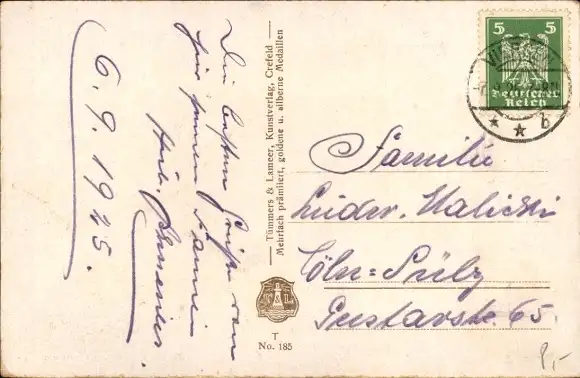 Die besten Grüße von
6.9.1925.
Tümmers & Lameer, Kunstverlag, Crefeld
Mehrfach prämiiert, goldene u. silberne Medaillen
T L
T
No. 185
5 5
Deutsches
Reich
* * b
Familie
Ludw.
Cöln=Sülz
Gustavstr. 65.